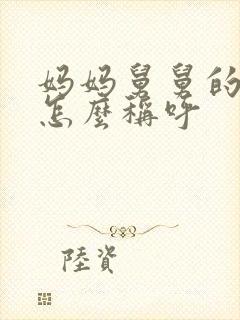 妈妈舅舅的
怎麼稱呼
陸資